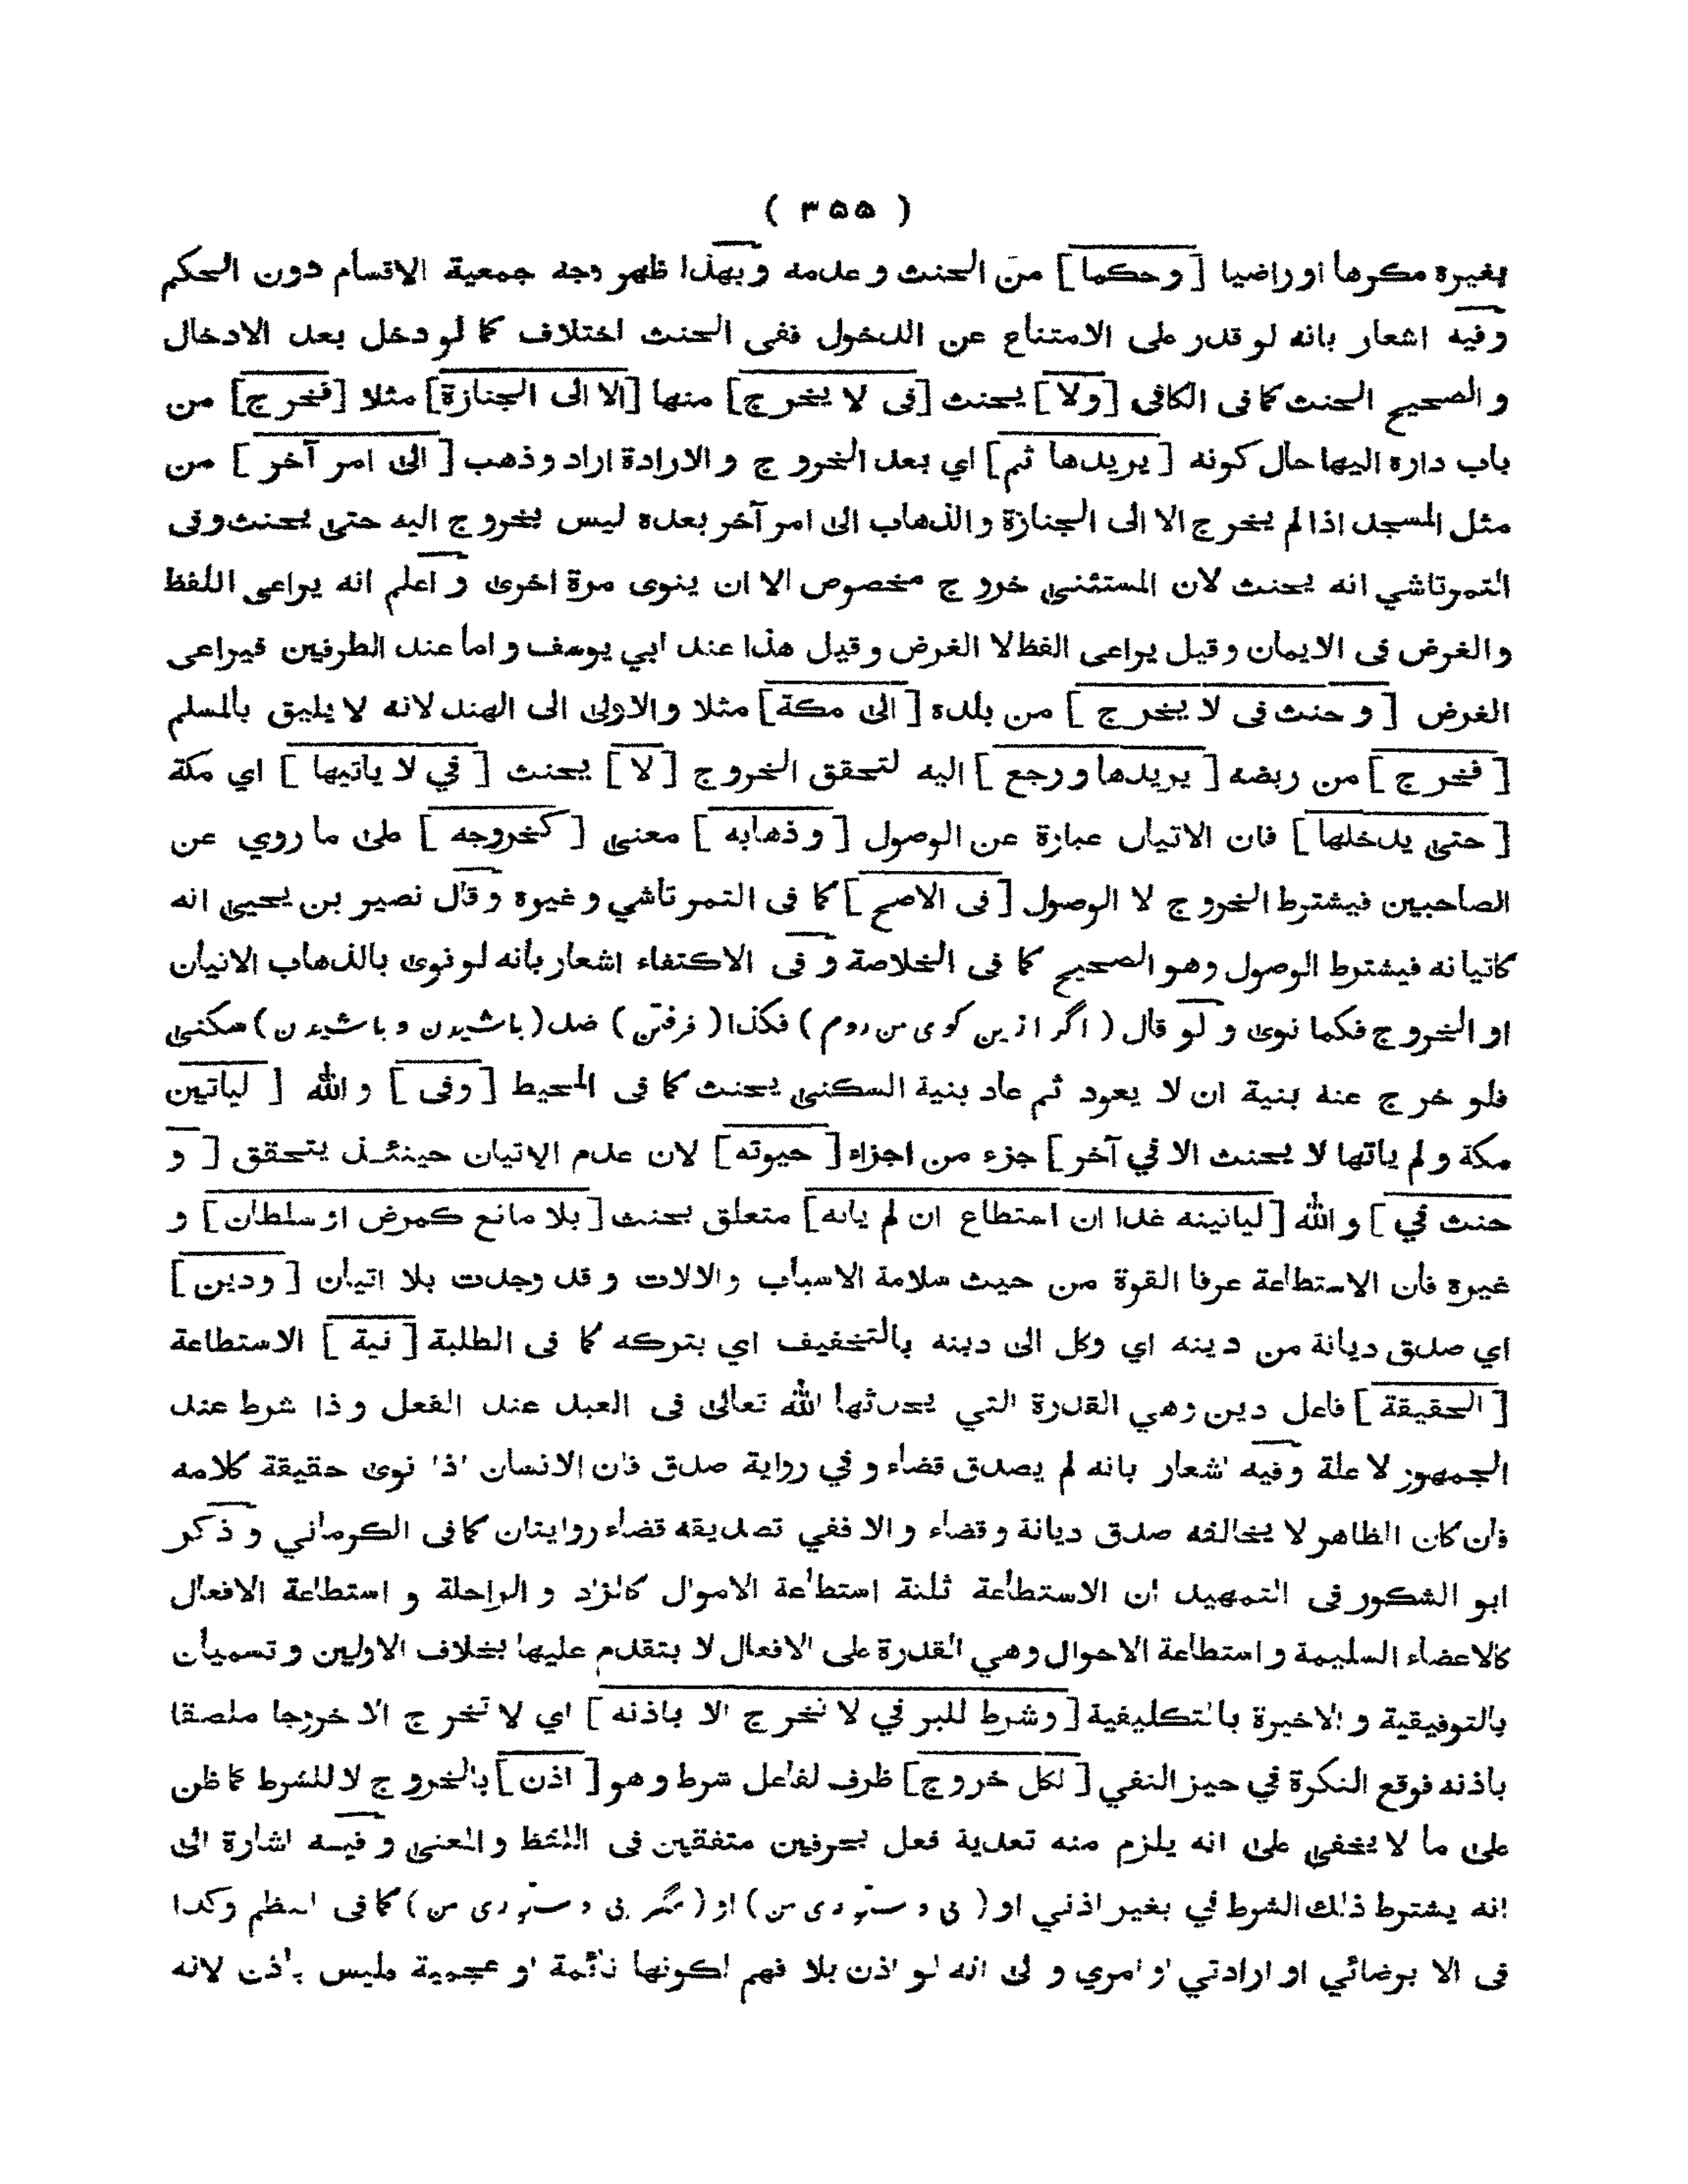 ( ٣٥٥ )
بغيره مكرها او راضيا [ و حكما ] من الحنث و عدمه و بهذا ظهر وجه جمعية الاقسام دون الحكم
و فيه اشعار بانه لو قدر على الامتناع عن الدخول ففى الحنث اختلاف كما لو دخل بعد الادخال
و الصحيح الحنث كما فى الكافى [ ولا ] يحنث [ فى لا يخرج ] منها [ الا الى الجنازة ] مثلا [ فخرج ] من
باب داره اليها حال كونه [ يريدها ثم ] اي بعد الخروج و الارادة اراد و ذهب [ الى امر آخر ] من
مثل المسجد اذا لم يخرج الا الى الجنازة و الذهاب الى امر آخر بعده ليس بخروج اليه حتى يحنث و فى
التمرتاشي انه يحنث لان المستثنى خروج مخصوص الا ان ينوى مرة اخرى و اعلم انه يراعى اللفظ
و الغرض فى الايمان و قيل يراعى الفظ لا الغرض و قيل هذا عند ابي يوسف و اما عند الطرفين فيراعى
الغرض [ و حنث فى لا يخرج ] من بلده [ الى مكة ] مثلا و الاولى الى الهند لانه لا يليق بالمسلم
[ فخرج ] من ربضه [ يريدها و رجع ] اليه لتحقق الخروج [ لا ] يحنث [ في لا ياتيها ] اي مكة
[ حتى يدخلها ] فان الاتيان عبارة عن الوصول [ و ذهابه ] معنى [ كخروجه ] على ما روي عن
الصاحبين فيشترط الخروج لا الوصول [ فى الاصح ] كما فى التمرتاشي و غيره و قال نصير بن يحيى انه
كاتيانه فيشترط الوصول و هو الصحيح كما فى الخلاصة و فى الاكتفاء اشعار بانه لو نوى بالذهاب الاتيان
او الخروج فكما نوى و لو قال ( اگر ازين كوى من روم ) فكذا ( فرفتن ) ضد ( باشيدن و باشيدن ) سكنى
فلو خرج عنه بنية ان لا يعود ثم عاد بنية السكنى يحنث كما فى المحيط [ وفى ] و الله [ لياتين
مكة و لم ياتها لا يحنث الا في آخر ] جزء من اجزاء [ حيوته ] لان عدم الاتيان حينئذ يتحقق [ و
حنث في ] و الله [ لياتينه غدا ان استطاع ان لم ياته ] متعلق بحنث [ بلا مانع كمرض او سلطان ] و
غيره فان الاستطاعة عرفا القوة من حيث سلامة الاسباب و الالات و قد وجدت بلا اتيان [ ودين ]
اي صدق ديانة من دينه اي وكل الى دينه بالتخفيف اي بتركه كما فى الطلبة [ نية ] الاستطاعة
[ الحقيقة ] فاعل دين وهي القدرة التي يحدثها الله تعالى فى العبد عند الفعل و ذا شرط عند
الجمهور لا علة و فيه اشعار بانه لم يصدق قضاء و في رواية صدق فان الانسان اذا نوى حقيقة كلامه
فان كان الظاهر لا يخالفه صدق ديانة و قضاء و الا ففي تصديقه قضاء روايتان كما فى الكرماني و ذكر
ابو الشكور فى التمهيد ان الاستطاعة ثلثة استطاعة الاموال كالزاد و الراحلة و استطاعة الافعال
كالاعضاء السليمة و استطاعة الاحوال وهي القدرة على الافعال لا يتقدم عليها بخلاف الاوليين و تسميان
بالتوفيقية و الاخيرة بالتكليفية [ و شرط للبر في لا تخرج الا باذنه ] اي لا تخرج الا خروجا ملصقا
باذنه فوقع النكرة في حيز النفي [ لكل خروج ] ظرف لفاعل شرط و هو [ اذن ] بالخروج لا للشرط كما ظن
على ما لا يخفى على انه يلزم منه تعدية فعل بحرفين متفقين فى اللفظ و المعنى و فيه اشارة الى
انه يشترط ذلك الشرط في بغير اذني او ( بى دستورى من ) او ( مگر بى دستورى من ) كما فى النظم وكذا
فى الا برضائي او ارادتي او امري و الى انه لو اذن بلا فهم لكونها نائمة او عجمية فليس باذن لانه